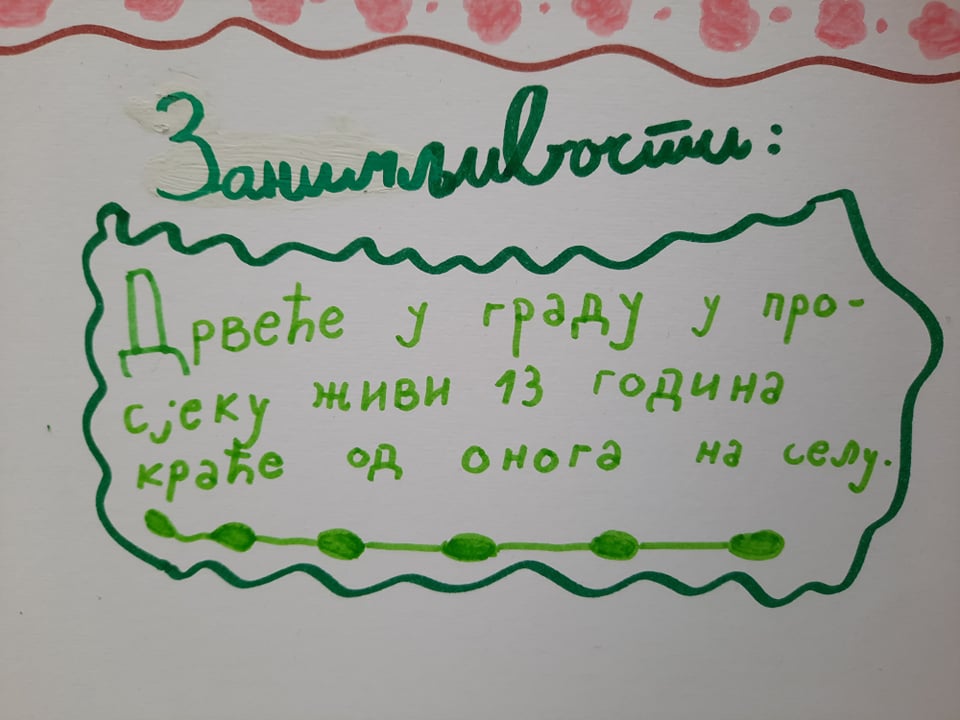 Занимљивости:
Дрвеће у граду у про-
сјеку живи 13 година
краће од онога на селу.